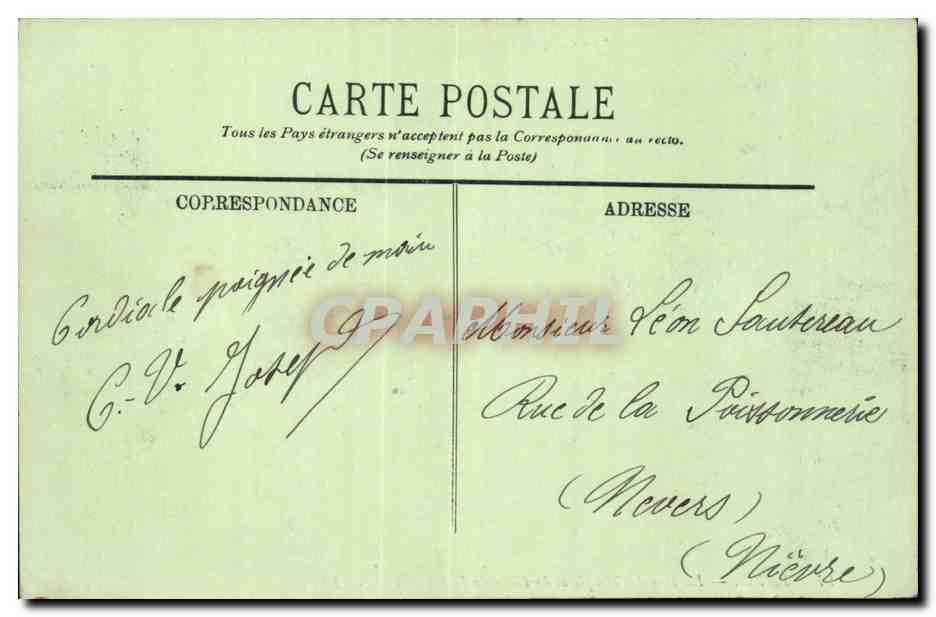 CARTE POSTALE
Tous les Pays étrangers n'acceptent pas la Correspondance au recto.
(Se renseigner à la Poste)
CORRESPONDANCE
ADRESSE
Cordiale poignée de main
C.-V. Josef
CPAPHIL
Monsieur Léon Sautereau
Rue de la Poissonnerie
(Nevers)
(Nièvre)